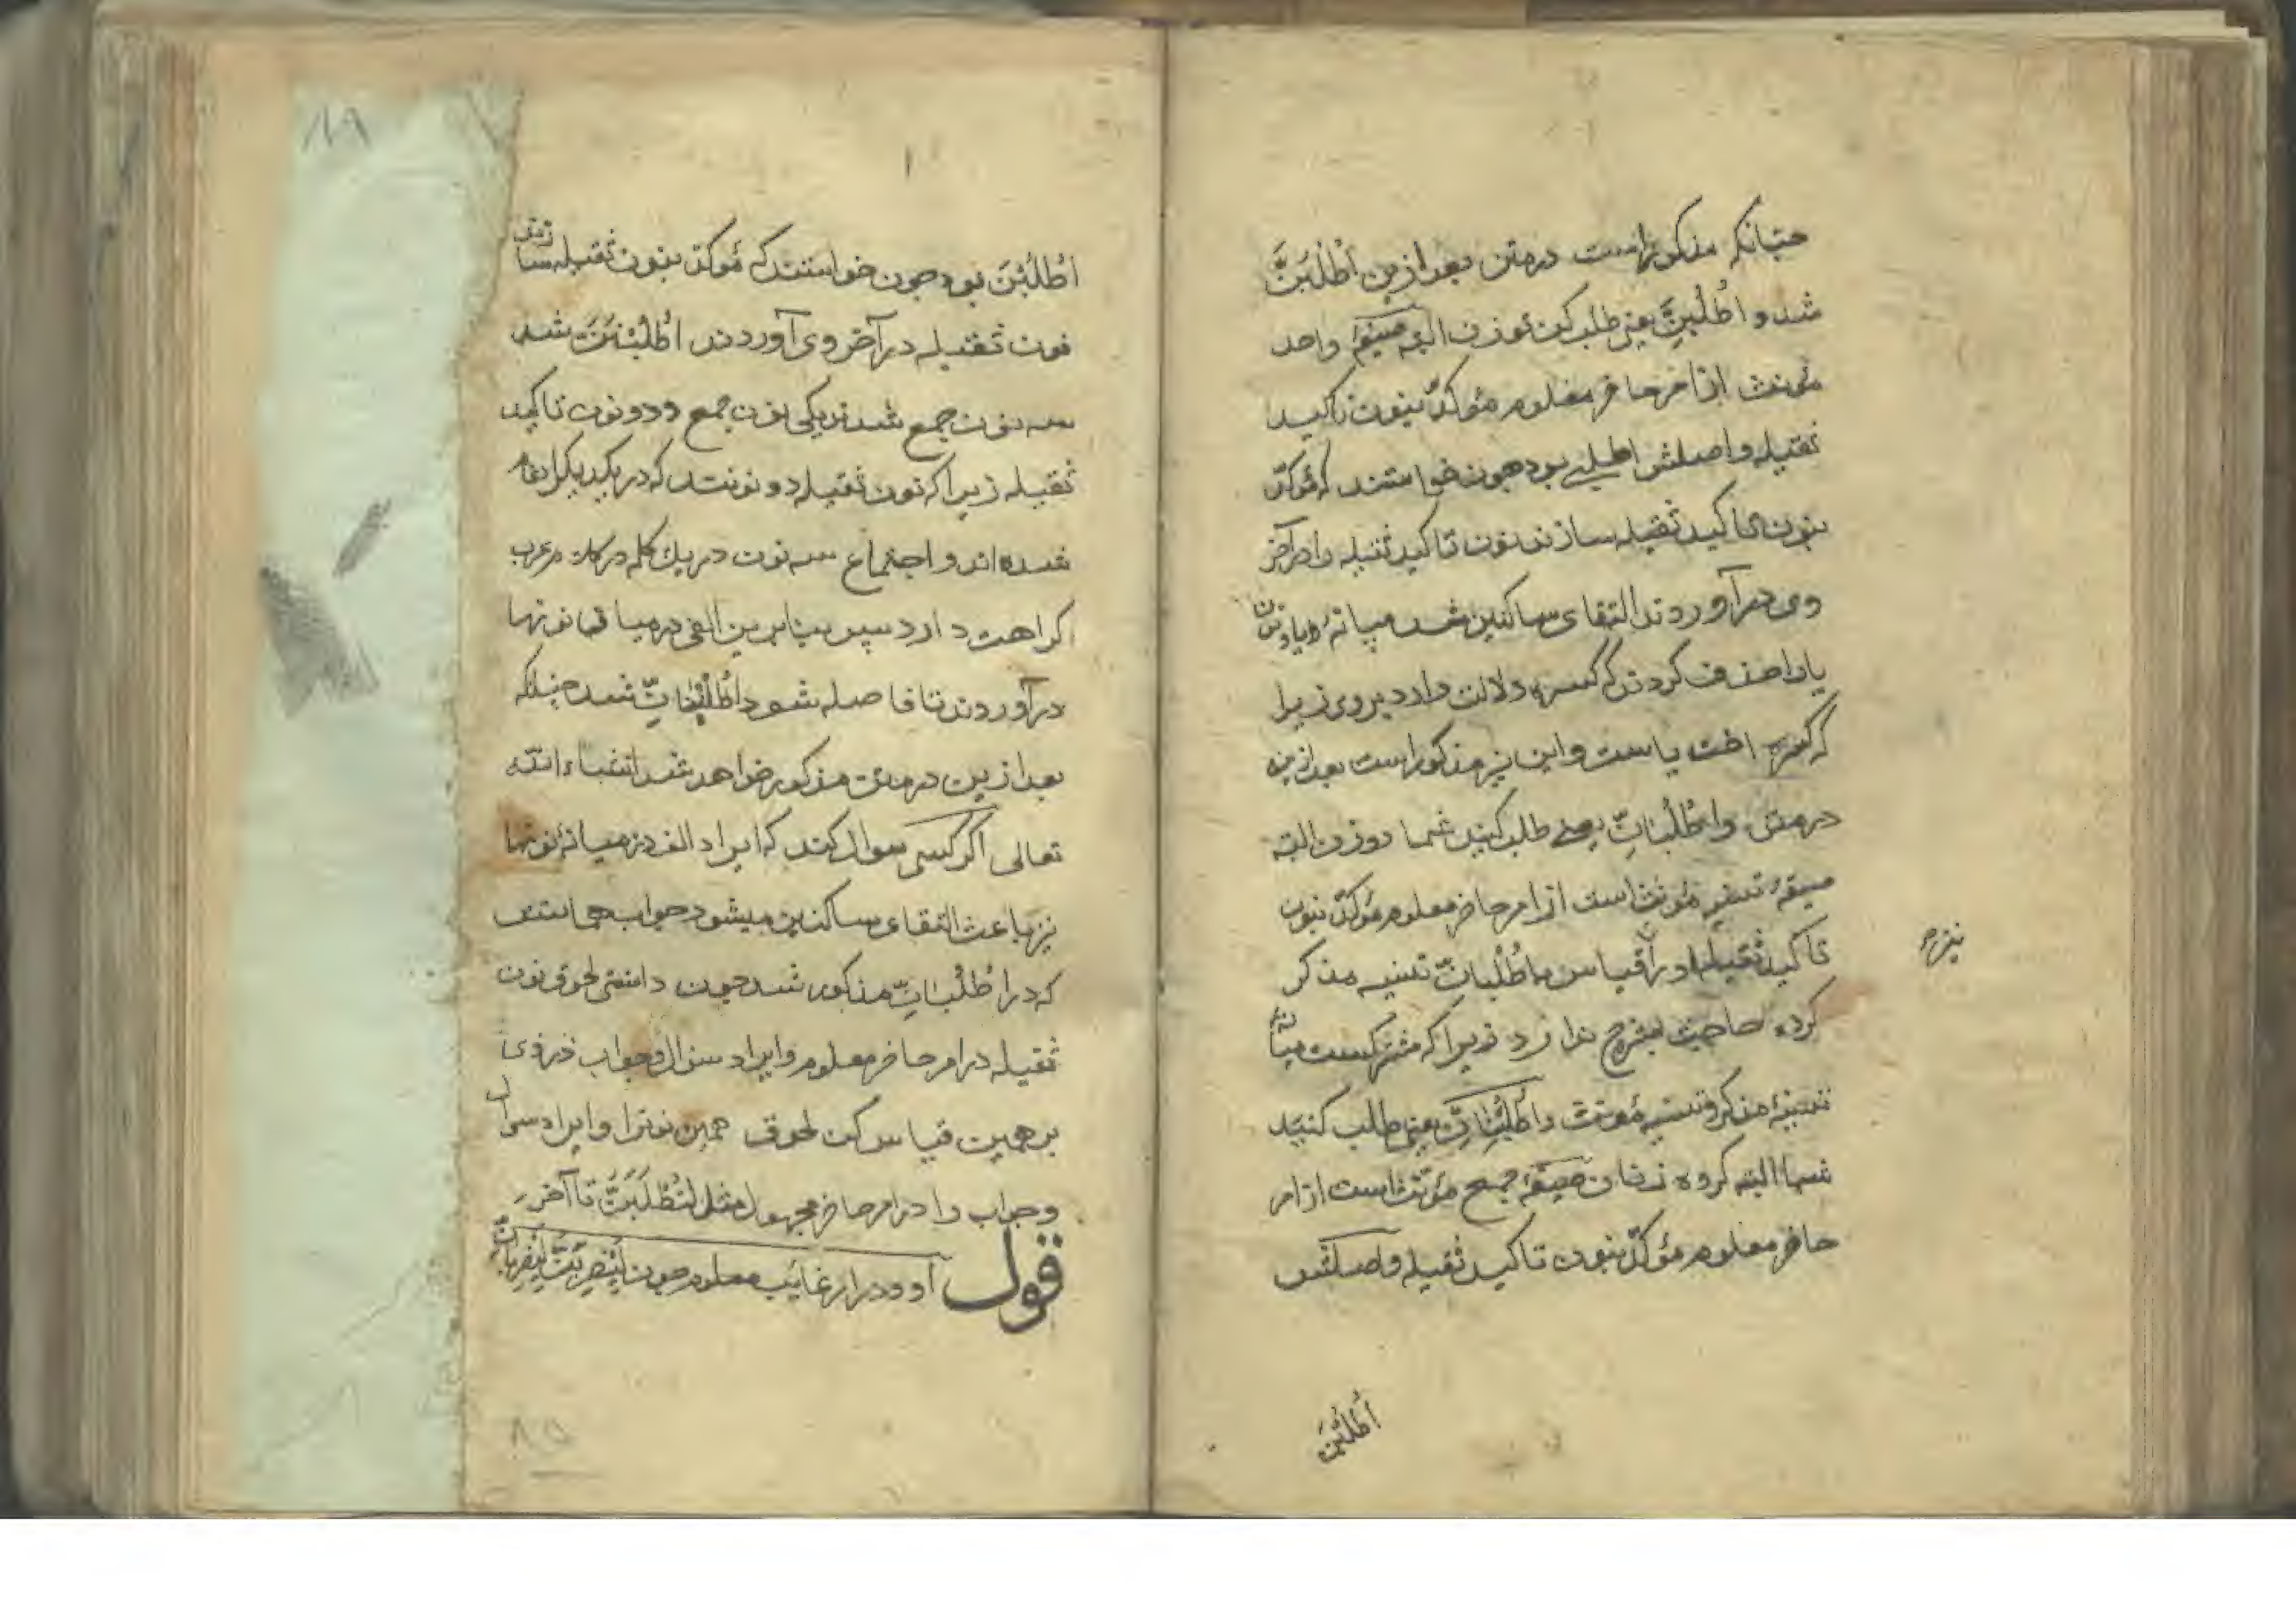 چنانکه مذکور است در متن بعد ازین اُطْلُبَنَّ
شد و اُطْلُبِنَّ یعنی طلب کن تو زن البته صیغهٔ واحد
مؤنث از امر حاضر معلوم مؤکدّ بنون تاکید
ثقیله و اصلش اطلبی بود چون خواستند که مؤکدّ
بنون تاکید ثقیله سازند نون تاکید ثقیله را در آخر
وی در آوردند التقای ساکنین شد میانهٔ یا و نون
یا را حذف کردند که کسره دلالت دارد بر وی زیرا
که کسره اخت یاست و این نیز مذکور است بعد ازین
در متن و اُطْلُبَانِّ یعنی طلب کنید شما دو زن البته
صیغهٔ تثنیه مؤنث است از امر حاضر معلوم مؤکدّ بنون
تاکید ثقیله و در قیاس با اُطْلُبانِّ تثنیه مذکر
کرده حاجت بشرح ندارد زیرا که مشترکست میانهٔ
تثنیهٔ مذکر و تثنیه مؤنث و اُطْلُبْنَانِّ یعنی طلب کنید
شما البته گروه زنان صیغهٔ جمع مؤنث است از امر
حاضر معلوم مؤکدّ بنون تاکید ثقیله و اصلش
اُطْلُبْنَ
نیزم
۱۸۹
اُطْلُبْنَ بود چون خواستند که مؤکدّ بنون ثقیله سازند
نون ثقیله در آخر وی آوردند اُطْلُبْنَنَّ شد
سه نون جمع شدند یکی نون جمع و دو نون تاکید
ثقیله زیرا که نون ثقیله دو نونند که در یکدیگر ادغام
شده اند و اجتماع سه نون در یک کلمه در کلام عرب
کراهت دارد پس بنابرین الفی در میان نونها
در آوردند تا فاصله شود اُطْلُبْنَانِّ شد چنانکه
بعد ازین در متن مذکور خواهد شد انشاء الله
تعالی اگر کسی سوال کند که ایراد الف در میانهٔ نونها
نیز باعث التقای ساکنین میشود جواب همانست
که در اُطْلُبَانِّ مذکور شد چون دانستی لحوق نون
ثقیله در امر حاضر معلوم و ایراد سوال و جواب در وی
بر همین قیاس کن لحوق همین نونرا و ایراد سوال
و جواب را در امر حاضر مجهول مثل لِتُطْلَبَنَّ تا آخر
قول او و در امر غایب معلوم چون لِیَضْرِبَنَّ لِیَضْرِبَانِّ